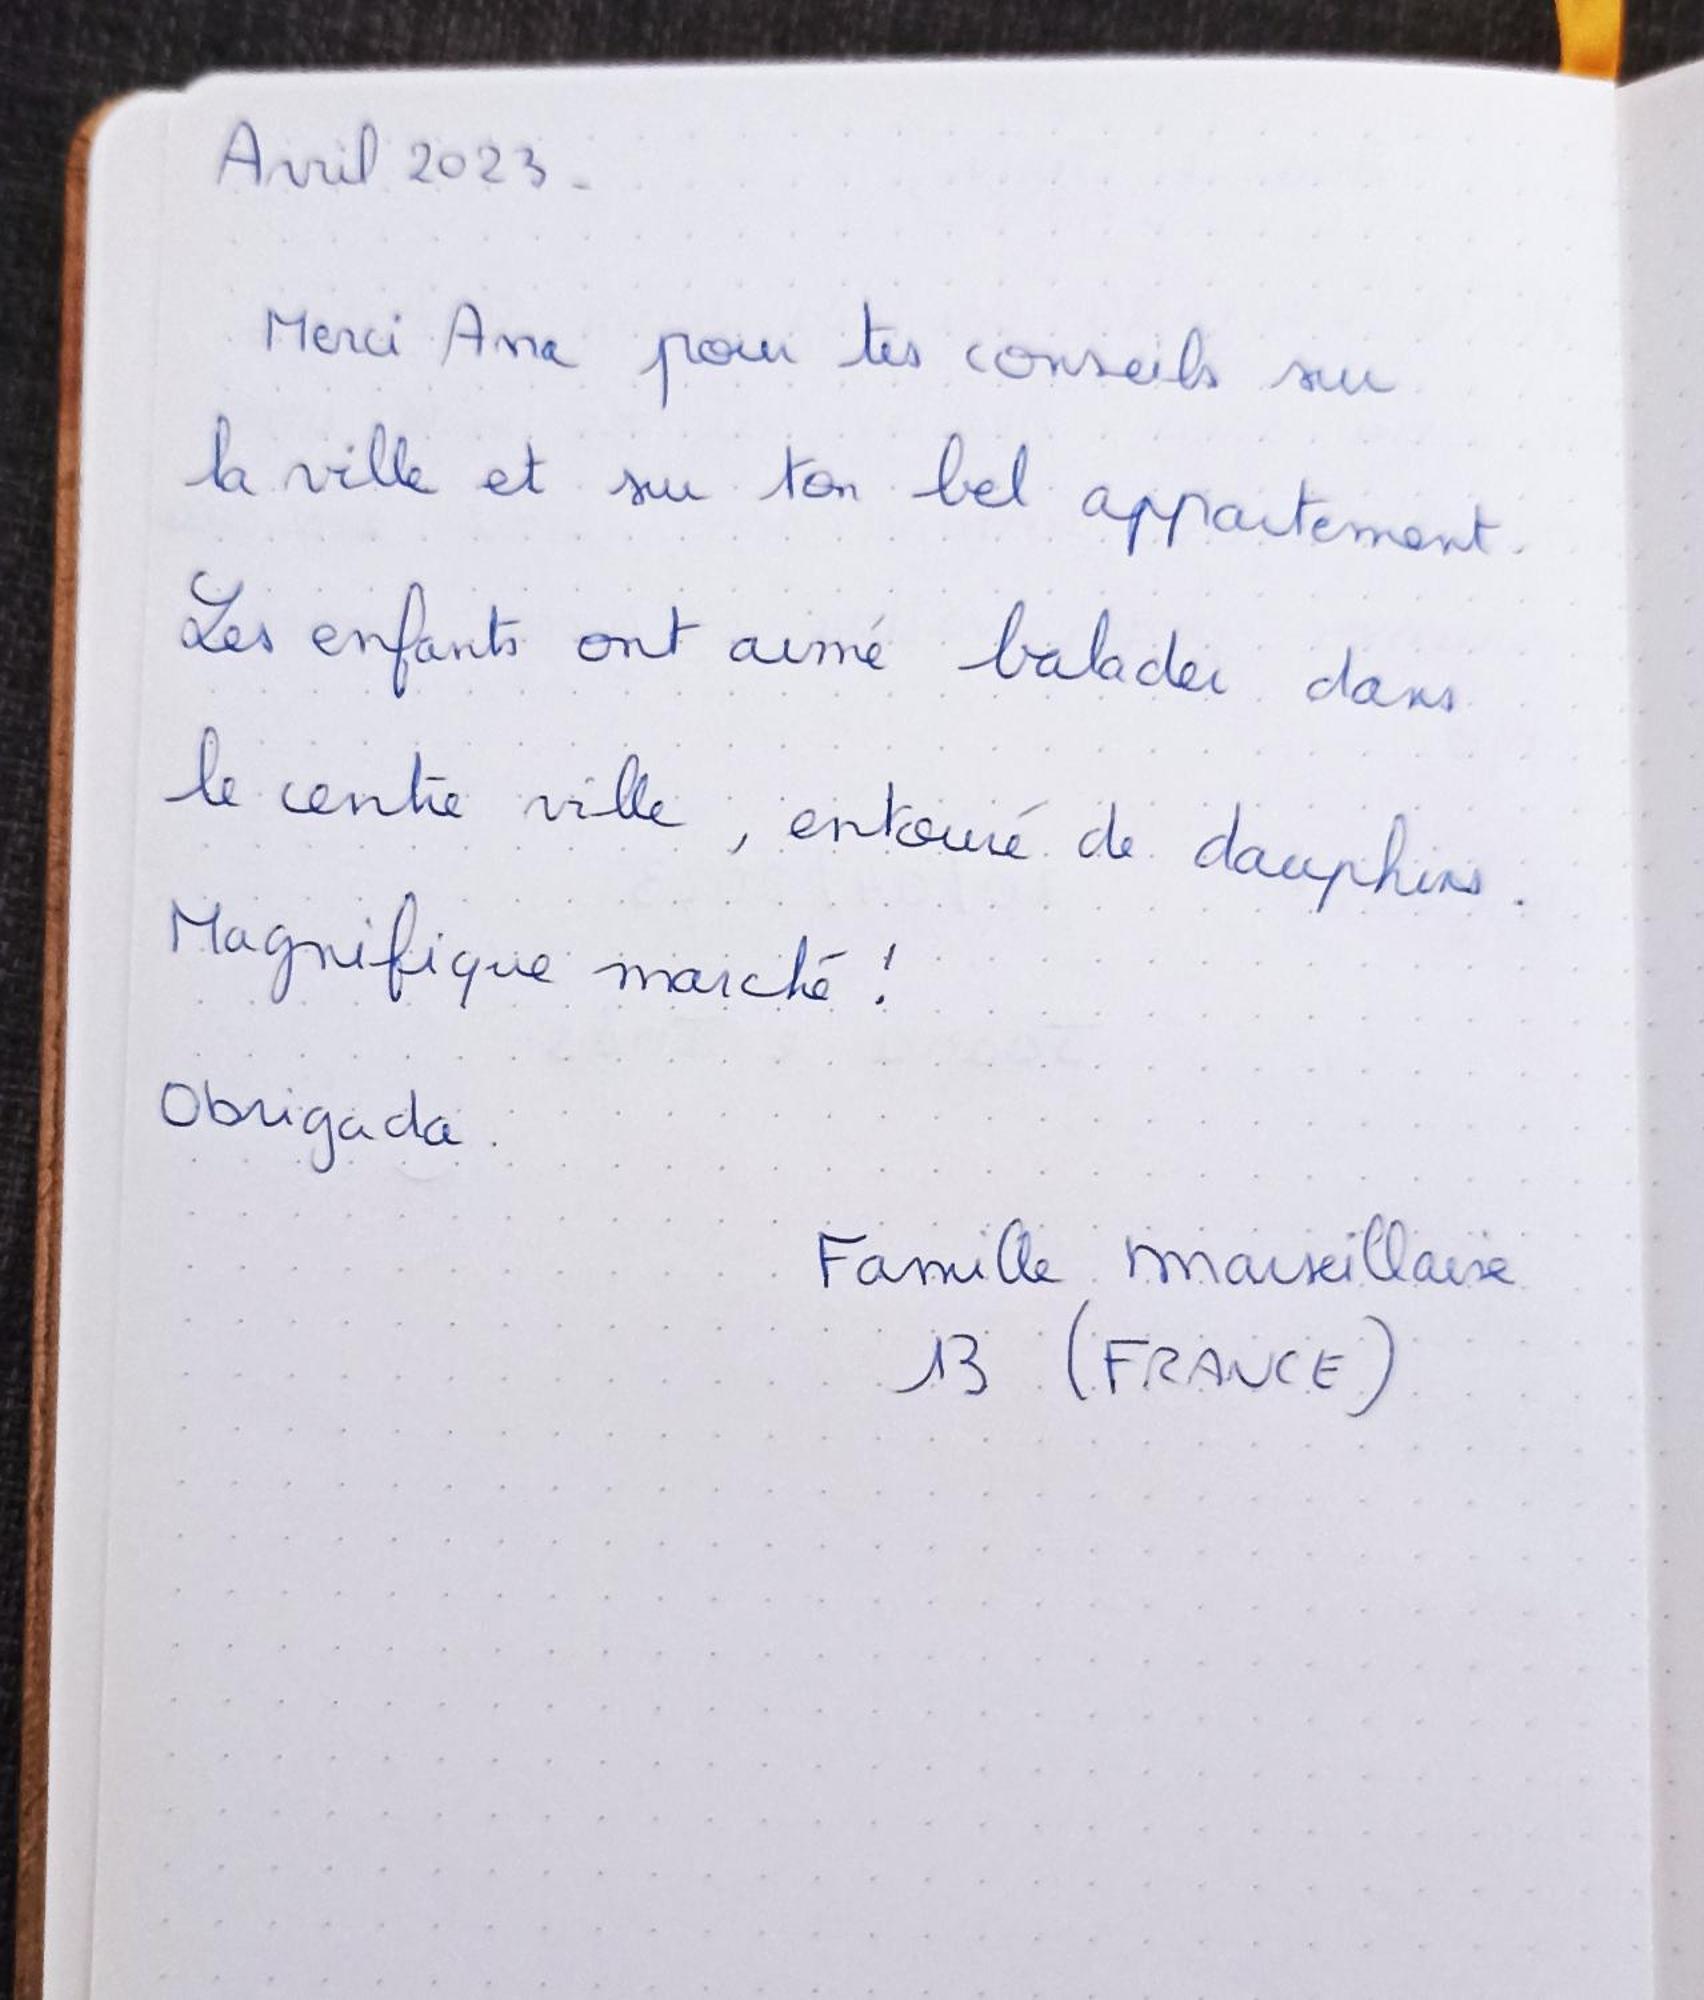 Avril 2023.
Merci Ana pour tes conseils sur
la ville et sur ton bel appartement.
Les enfants ont aimé balader dans
le centre ville, entouré de dauphins.
Magnifique marché !
Obrigada.
Famille marseillaise
13 (FRANCE)